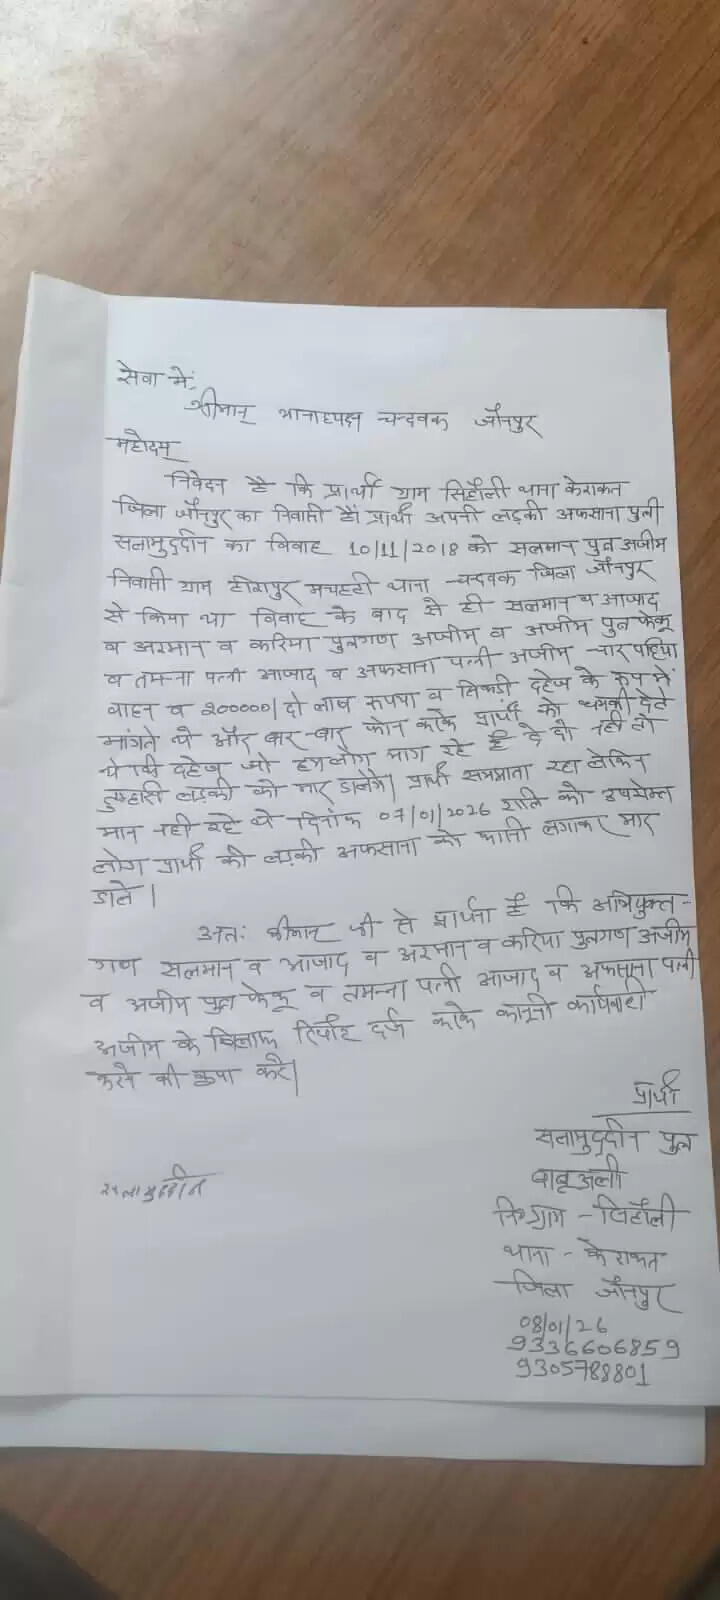 सेवा में,
श्रीमान् थानाध्यक्ष चन्दवक जौनपुर
महोदय
निवेदन है कि प्रार्थी ग्राम सिहौली थाना केराकत
जिला जौनपुर का निवासी है। प्रार्थी अपनी लड़की अफसाना पुत्री
सलामुद्दीन का विवाह 10/11/2018 को सलमान पुत्र अजीम
निवासी ग्राम हीरापुर मचहटी थाना चन्दवक जिला जौनपुर
से किया था विवाह के बाद से ही सलमान व आजाद
व अरमान व करिया पुत्रगण अजीम व अजीम पुत्र फेकू
व तमन्ना पत्नी आजाद व अफसाना पत्नी अजीम चार पहिया
वाहन व 200000/ दो लाख रूपया व सिकड़ी दहेज के रूप में
मांगते थे और बार-बार फोन करके प्रार्थी को धमकी देते
थे कि दहेज जो हमलोग मांग रहे हैं दे दो नही तो
तुम्हारी लड़की को मार डालेंगे। प्रार्थी समझाता रहा लेकिन
मान नही रहे थे दिनांक 07/01/2026 रात्रि को उपरोक्त
लोग प्रार्थी की लड़की अफसाना को फासी लगाकर मार
डाले।
अतः श्रीमान् जी से प्रार्थना है कि अभियुक्त-
गण सलमान व आजाद व अरमान व करिया पुत्रगण अजीम
व अजीम पुत्र फेकू व तमन्ना पत्नी आजाद व अफसाना पत्नी
अजीम के खिलाफ रिपोर्ट दर्ज करके कानूनी कार्यवाही
करने की कृपा करें।
प्रार्थी
सलामुद्दीन पुत्र
बाबू अली
नि० ग्राम - सिहौली
थाना - केराकत
जिला जौनपुर
सलामुद्दीन
08/01/26
9336606859
9305788801